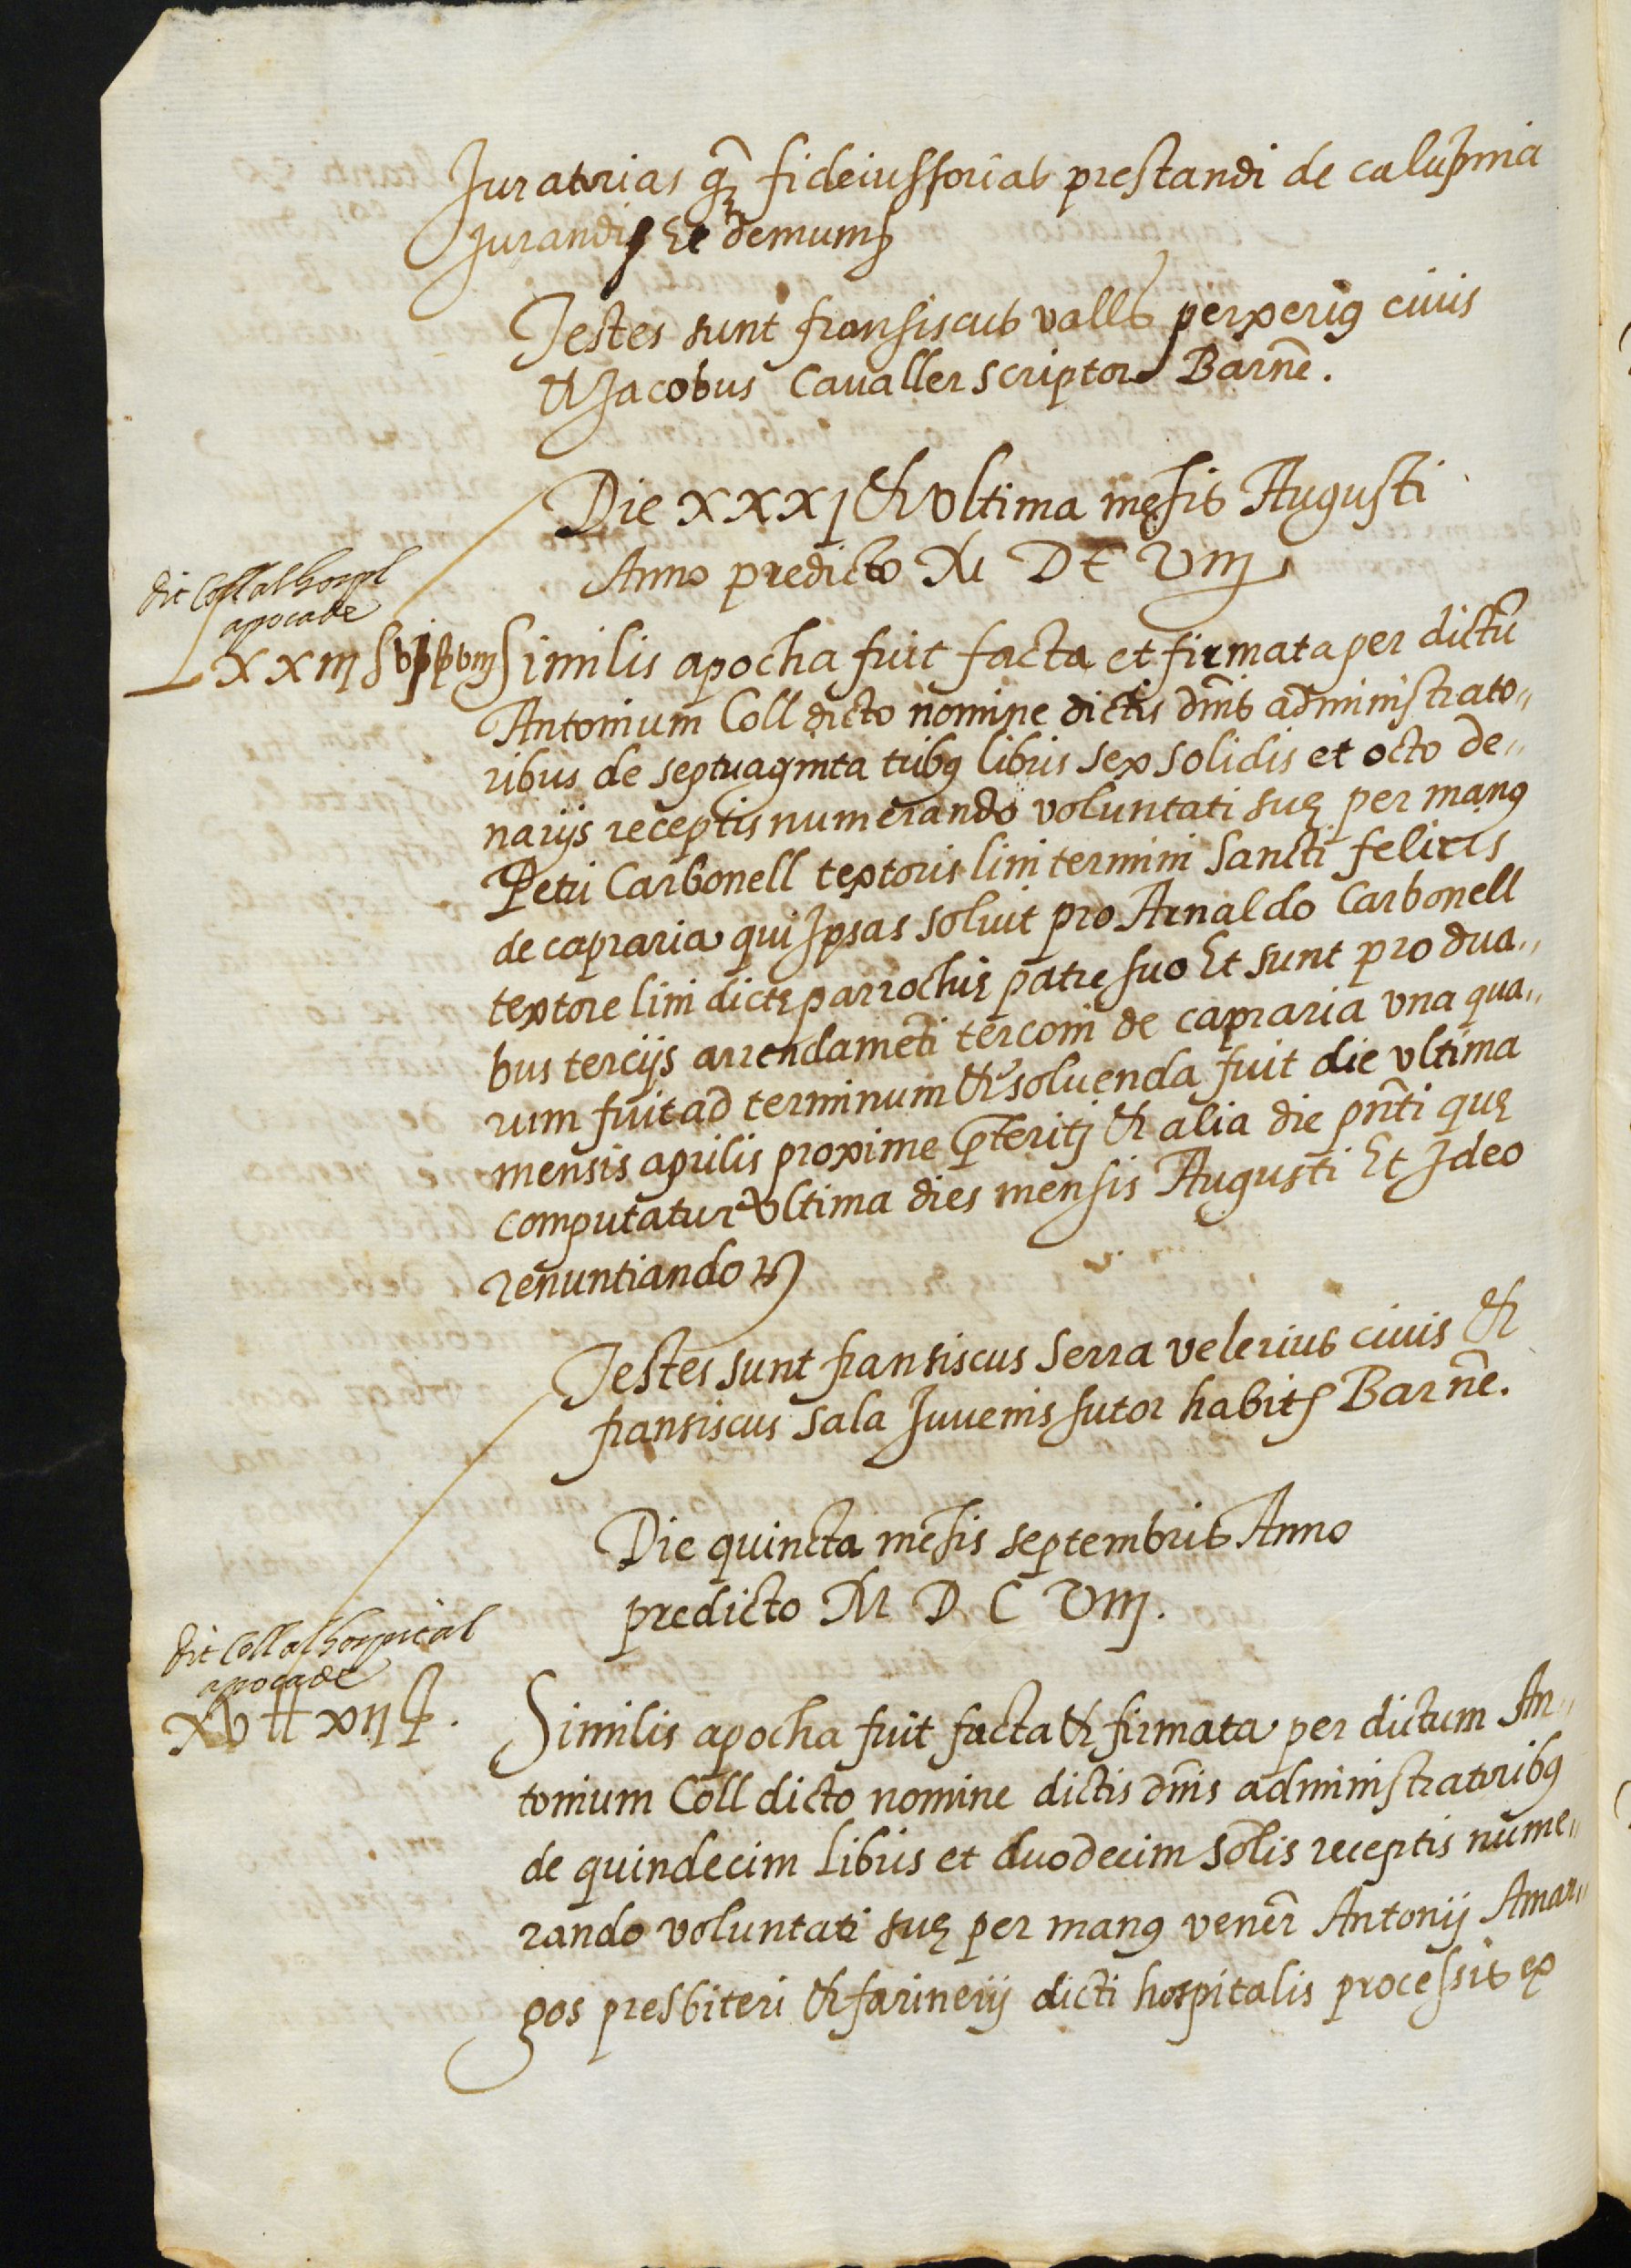 Juratorias q̃ȝ fideiussorias prestandi de calūpnia
jurandi Et demum
Testes sunt fransiscus valls perxerius ciuis
et Jacobus Cauallerr scriptor Barñe.
Die XXXJ et vltima mēsis Augusti
Anno predicto M D C Viij
dit Coll al hospl
apocade
LXXIII ß vj s viij Similis apocha fuit facta et firmata per dictū
Antonium Coll dicto nomine dictis dñis administrato„
ribus de septuaginta tribus libris sex solidis et octo de„
narijs receptis numerando voluntati suę per manus
Petri Carbonell textoris lini termini Sancti felicis
de capraria qui Ipsas soluit pro Arnaldo Carbonell
textore lini dictę parrochię patre suo Et sunt pro dua„
bus tercijs arrendamēti tercom de capraria vna qua„
rum fuit ad terminum et soluenda fuit die vltima
mensis aprilis proxime p̄teritj et alia die pñti quę
computatur vltima dies mensis Augusti Et Ideo
renuntiando
Testes sunt fransiscus Serra velerius ciuis et
fransiscus Sala Juuenis sutor habit Barñe.
Die quincta mēsis septembris Anno
predicto M D C Viij.
dit Coll al hospital
apocade
XV tt xij ß. Similis apocha fuit facta et firmata per dictum An„
tonium Coll dicto nomine dictis dñis administratoribus
de quindecim libris et duodecim solis receptis nume„
rando voluntati suę per manus vener̄ Antonij Amar„
gos presbiteri et farinerij dicti hospitalis processit ex